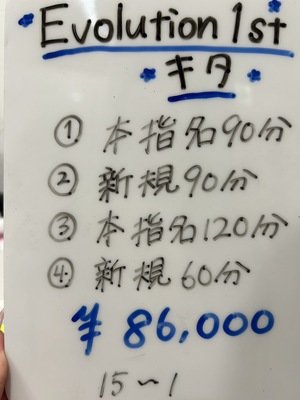 Evolution 1st
キタ
① 本指名90分
② 新規90分
③ 本指名120分
④ 新規60分
¥ 86,000
15〜1